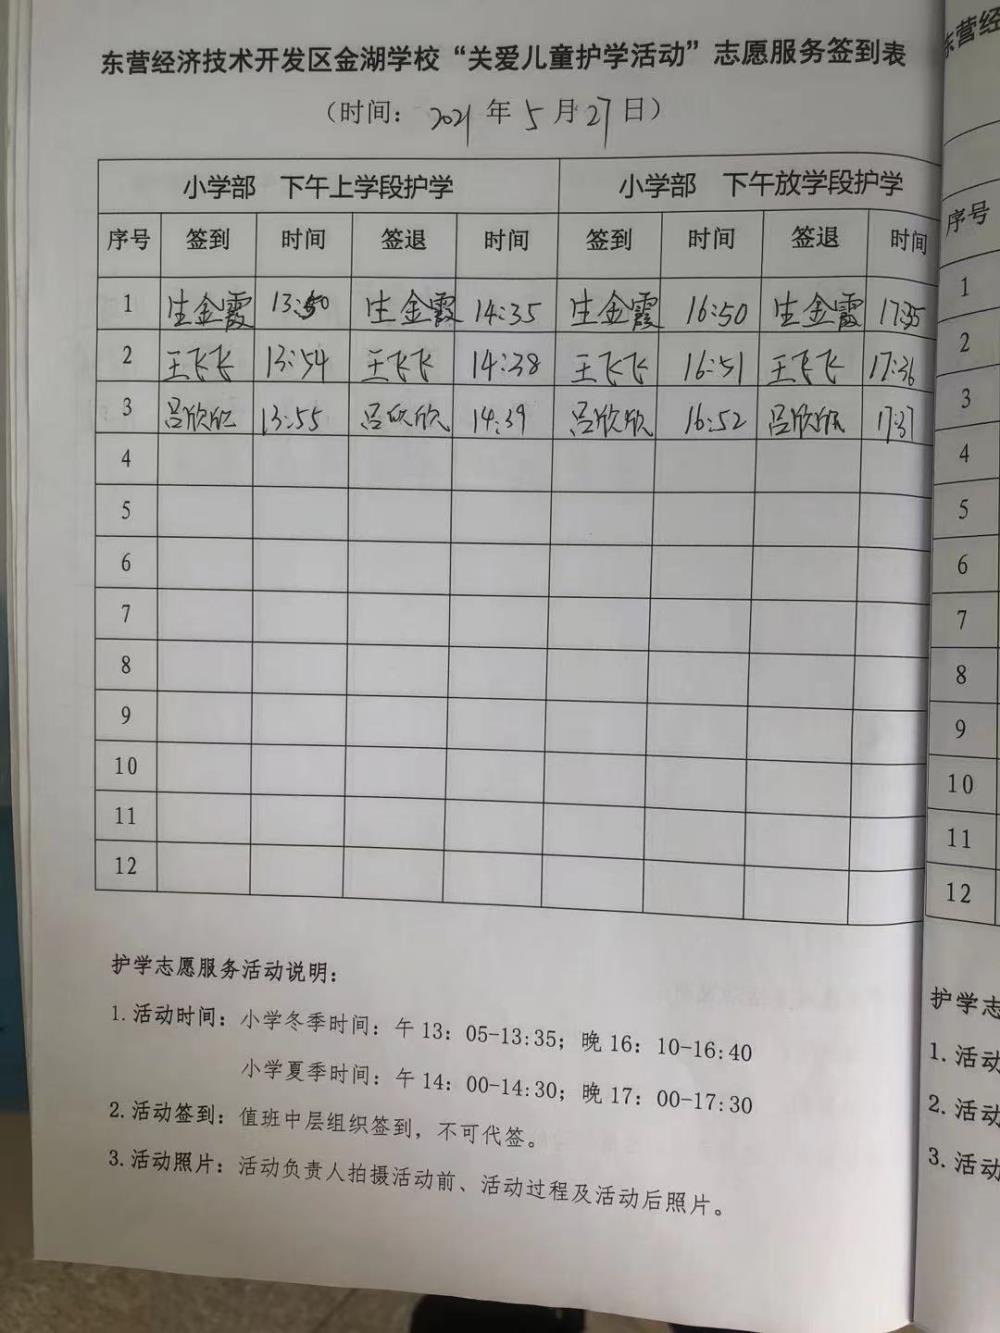 东营经济技术开发区金湖学校“关爱儿童护学活动”志愿服务签到表
（时间：2021年5月27日）
小学部 下午上学段护学 小学部 下午放学段护学
序号 签到 时间 签退 时间 签到 时间 签退 时间
1 生金霞 13:50 生金霞 14:35 生金霞 16:50 生金霞 17:35
2 王飞飞 13:54 王飞飞 14:38 王飞飞 16:51 王飞飞 17:36
3 吕欣欣 13:55 吕欣欣 14:39 吕欣欣 16:52 吕欣欣 17:37
4
5
6
7
8
9
10
11
12
护学志愿服务活动说明：
1.活动时间：小学冬季时间：午13：05-13:35；晚16：10-16:40
小学夏季时间：午14：00-14:30；晚17：00-17:30
2.活动签到：值班中层组织签到，不可代签。
3.活动照片：活动负责人拍摄活动前、活动过程及活动后照片。
东营经
序号
1
2
3
4
5
6
7
8
9
10
11
12
护学志
1.活动
2.活动
3.活动